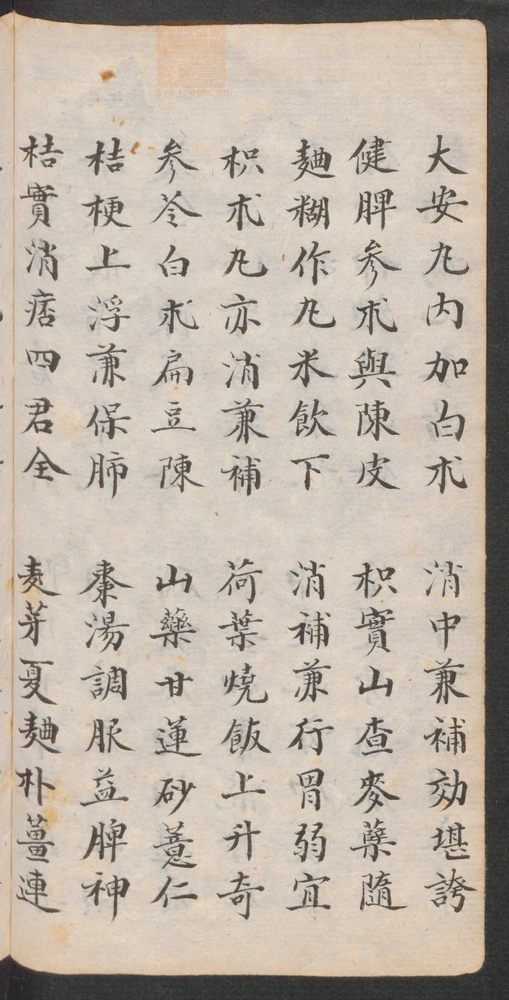 大安丸內加白朮　消中兼補効堪誇
健脾參朮與陳皮　枳實山查麥蘖隨
麯糊作丸米飲下　消補兼行胃弱宜
枳朮丸亦消兼補　荷葉燒飯上升奇
參苓白朮扁豆陳　山藥甘蓮砂薏仁
桔梗上浮兼保肺　棗湯調服益脾神
枯實消痞四君全　麦芽夏麯朴薑連